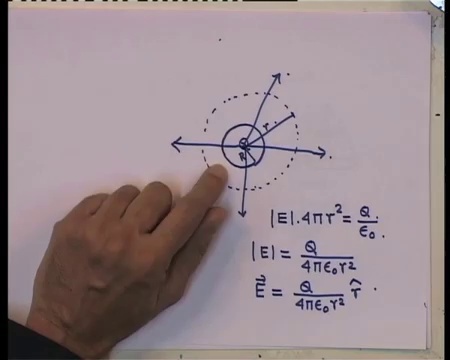 r
Q
R
|E|. 4πr² = Q/ε₀.
|E| = Q/4πε₀r²
E⃗ = Q/4πε₀r² r̂.